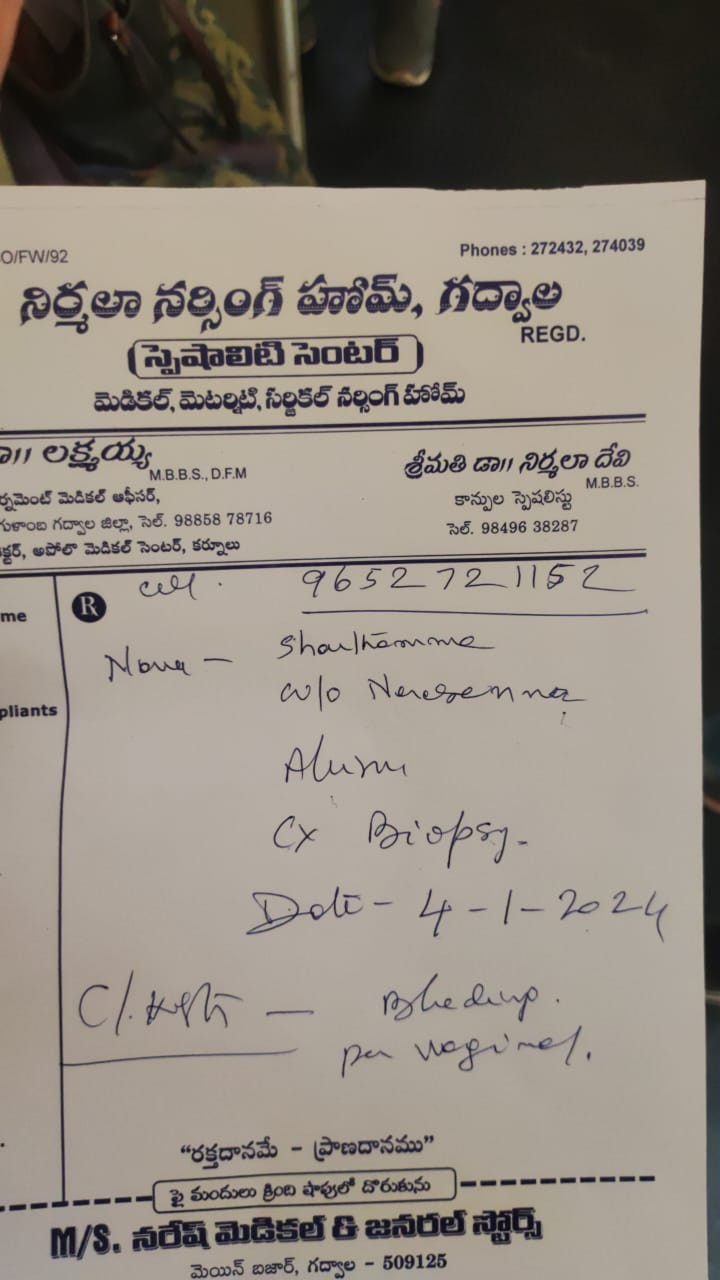 O/FW/92
Phones : 272432, 274039
నిర్మలా నర్సింగ్ హోమ్, గద్వాల
REGD.
(స్పెషాలిటి సెంటర్)
మెడికల్, మెటర్నిటి, సర్జికల్ నర్సింగ్ హోమ్
డా॥ లక్ష్మయ్య
M.B.B.S., D.F.M
ర్నమెంట్ మెడికల్ ఆఫీసర్,
గుళాంబ గద్వాల జిల్లా, సెల్. 98858 78716
క్టర్, అపోలో మెడికల్ సెంటర్, కర్నూలు
శ్రీమతి డా॥ నిర్మలా దేవి
M.B.B.S.
కాన్పుల స్పెషలిస్టు
సెల్. 98496 38287
me
pliants
R
cell. 9652721152
Name -
w/o
Cx Biopsy.
Date - 4-1-2024
Bleeding.
per vaginal.
"రక్తదానమే - ప్రాణదానము"
పై మందులు క్రింది షాపులో దొరుకును
M/S. నరేష్ మెడికల్ & జనరల్ స్టోర్స్
మెయిన్ బజార్, గద్వాల - 509125